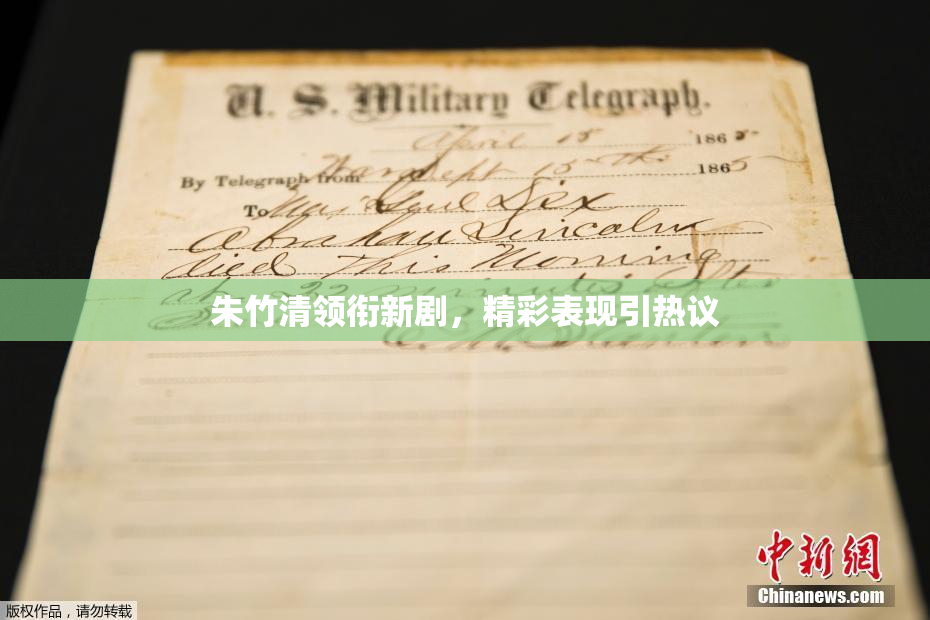 U. S. Military Telegraph.
April 15 1865
By Telegraph from War Dept 15th 1865
To Maj Genl Dix
Abraham Lincoln
died This Morning
at 22 minutes after
朱竹清领衔新剧，精彩表现引热议
E. M. Stanton
中新网
Chinanews.com
版权作品，请勿转载